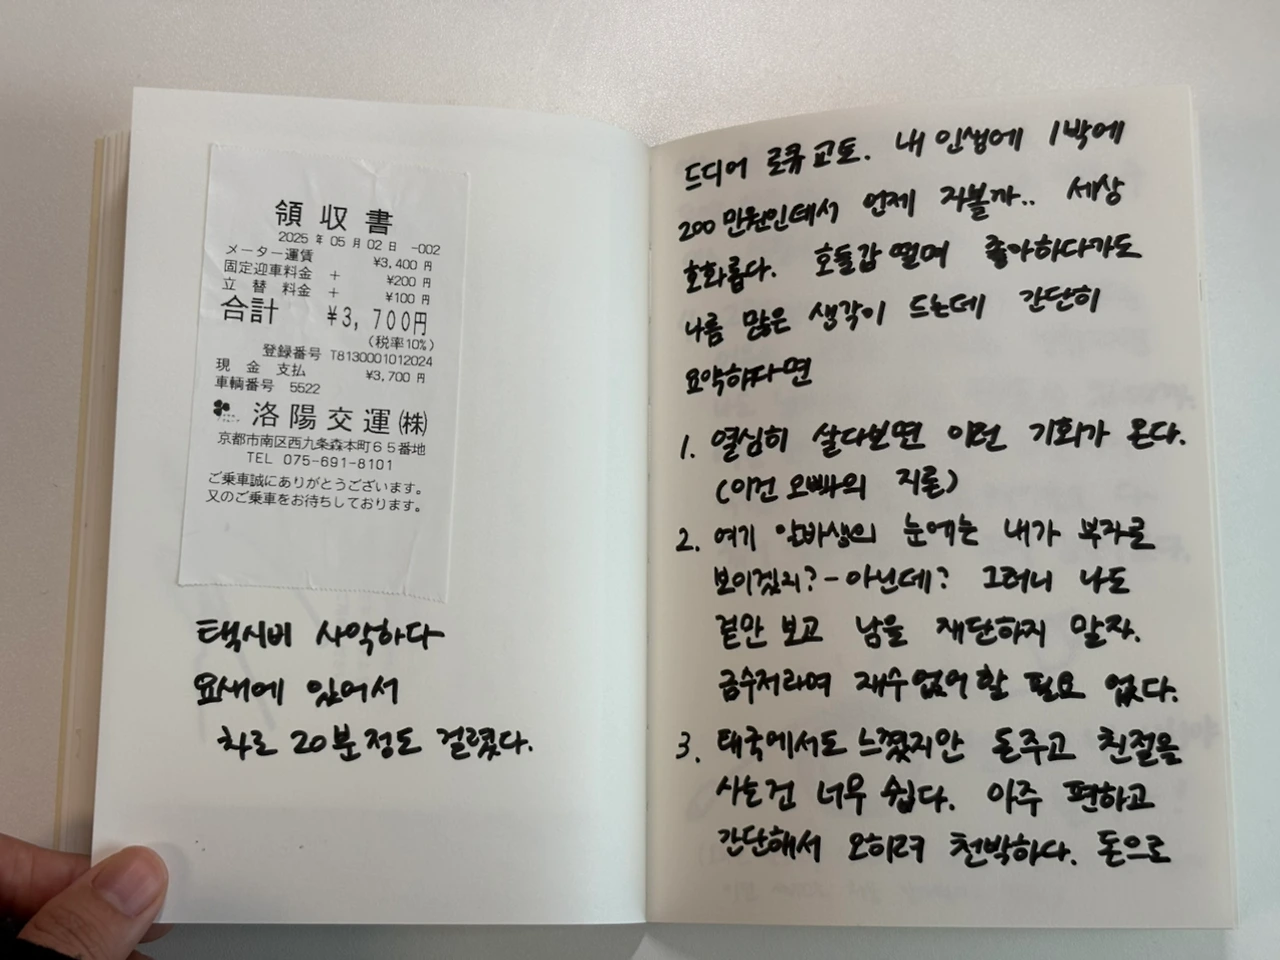 領収書
2025年05月02日 -002
メーター運賃 ¥3,400円
固定迎車料金 + ¥200円
立替料金 + ¥100円
合計 ¥3,700円
(税率10%)
登録番号 T8130001012024
現金支払 ¥3,700円
車輌番号 5522
洛陽交運㈱
京都市南区西九条森本町65番地
TEL 075-691-8101
ご乗車誠にありがとうございます。
又のご乗車をお待ちしております。
택시비 사악하다
요새에 있어서
차로 20분정도 걸렸다.
드디어 로쿠교토. 내 인생에 1박에
200만원인데서 언제 자볼까.. 세상
호화롭다. 호들갑 떨며 좋아하다가도
나름 많은 생각이 드는데 간단히
요약하자면
1. 열심히 살다보면 이런 기회가 온다.
(이건 오빠의 지론)
2. 여기 알바생의 눈에는 내가 부자로
보이겠지? - 아닌데? 그러니 나도
겉만 보고 남을 재단하지 말자.
금수저라며 재수없어할 필요 없다.
3. 태국에서도 느꼈지만 돈주고 친절을
사는건 너무 쉽다. 아주 편하고
간단해서 오히려 천박하다. 돈으로